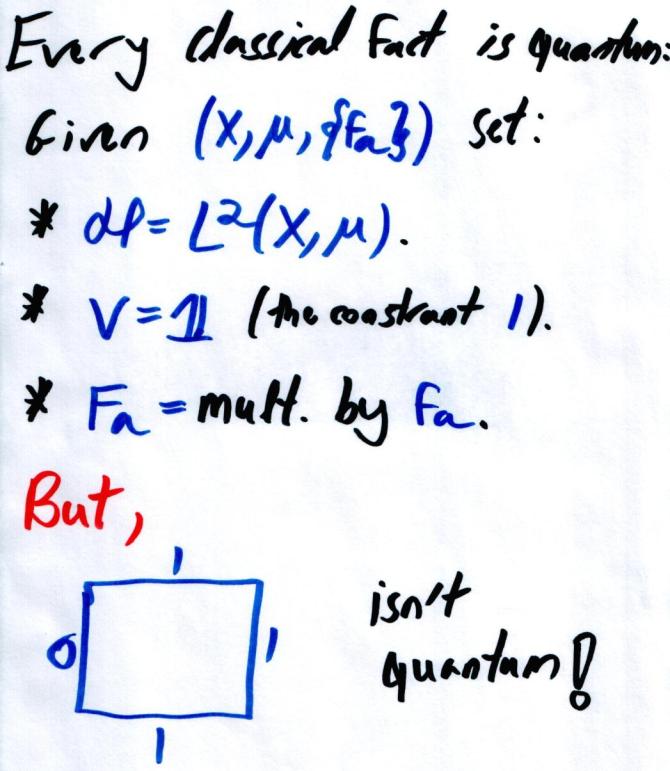 Every classical fact is quantum:
Given (X, μ, {fₐ}) set:
* ℋ = L²(X, μ).
* V = 𝟙 (the constant 1).
* Fₐ = mult. by fₐ.
But,
1
0 1
isn't
quantum!
1